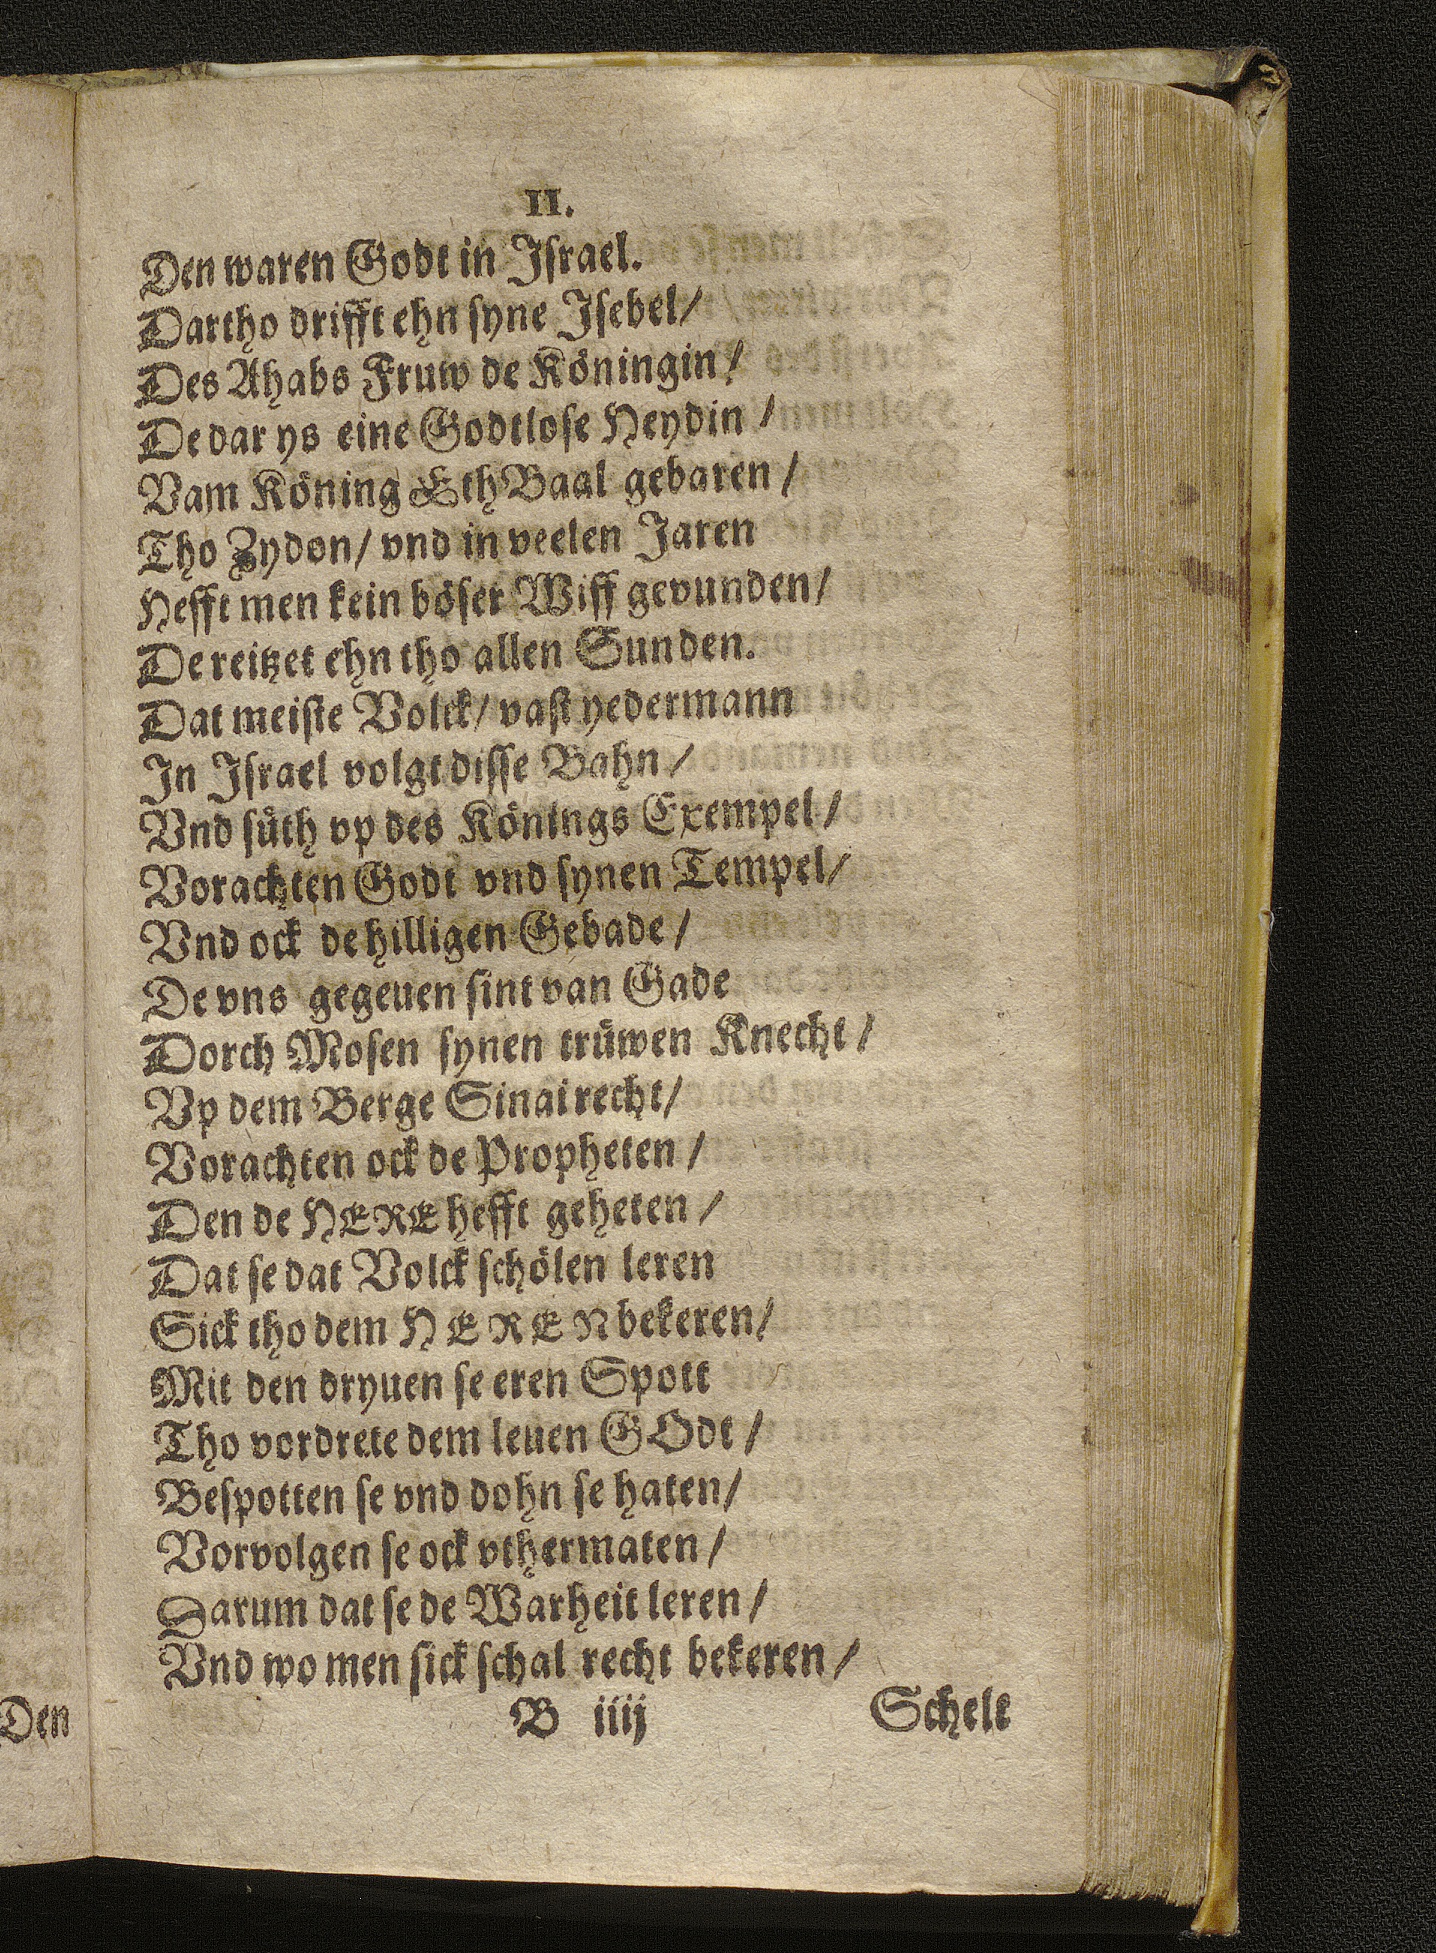 II.
Den waren Godt in Israel.
Dartho drifft ehn syne Isebel/
Des Ahabs Fruw de Köningin/
De dar ys eine Godtlose Heydin/
Vam Köning EthBaal gebaren/
Tho Zydon/ vnd in veelen Jaren
Hefft men kein böser Wiff gevunden/
De reitzet ehn tho allen Sunden.
Dat meiste Volck/ vast yedermann
In Israel volgt disse Bahn/
Vnd süth vp des Königs Exempel/
Vorachten Godt vnd synen Tempel/
Vnd ock de hilligen Gebade/
De vns gegeuen sint van Gade
Dorch Mosen synen trüwen Knecht/
Vp dem Berge Sinai recht/
Vorachten ock de Propheten/
Den de HERE hefft geheten/
Dat se dat Volck schölen leren
Sick tho dem HEREN bekeren/
Mit den dryuen se eren Spott
Tho vordrete dem leuen GOdt/
Bespotten se vnd dohn se haten/
Vorvolgen se ock vthermaten/
Darum dat se de Warheit leren/
Vnd wo men sick schal recht bekeren/
B iiij
Schelt
Den